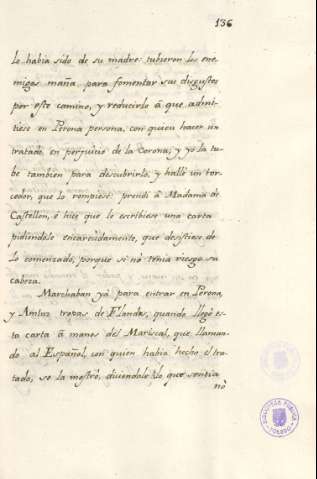 136
le habia sido de su madre: tubieron los ene-
migos maña para fomentar sus disgustos
por este camino, y reducirlo â que admi-
tiese en Perona persona, con quien hacer un
tratado en perjuicio de la Corona; y yo la tu-
be tambien para descubrirlo, y hallè un tor-
cedor, que lo rompiese: prendi â Madama de
Castellon, è hice que le escribiese una carta
pidiendole encarecidamente, que desistiese de
lo comenzado, porque si nò tenia riesgo su
cabeza.
Marchaban yà para entrar en Perona,
y Amluz tropas de Flandes, quando llegò es-
ta carta â manos del Mariscal, que llaman-
do al Español, con quien habia hecho el tra-
tado, se la mostrò, diciendole lo que sentia
nò
BIBLIOTECA PUBLICA
TOLEDO